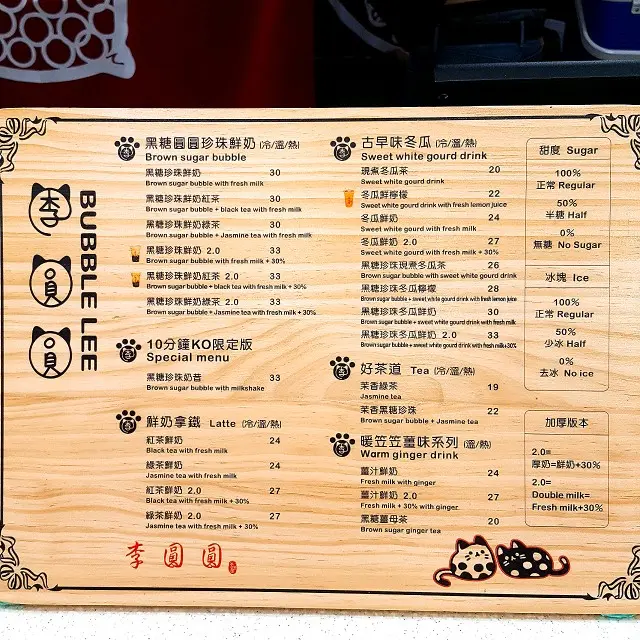 李
員
員
BUBBLE LEE
黑糖圓圓珍珠鮮奶 (冷/溫/熱)
Brown sugar bubble
黑糖珍珠鮮奶 30
Brown sugar bubble with fresh milk
黑糖珍珠鮮奶紅茶 30
Brown sugar bubble + black tea with fresh milk
黑糖珍珠鮮奶綠茶 30
Brown sugar bubble + Jasmine tea with fresh milk
黑糖珍珠鮮奶 2.0 33
Brown sugar bubble with fresh milk + 30%
黑糖珍珠鮮奶紅茶 2.0 33
Brown sugar bubble + black tea with fresh milk + 30%
黑糖珍珠鮮奶綠茶 2.0 33
Brown sugar bubble + Jasmine tea with fresh milk + 30%
10分鐘KO限定版
Special menu
黑糖珍珠奶昔 33
Brown sugar bubble with milkshake
鮮奶拿鐵 Latte (冷/溫/熱)
紅茶鮮奶 24
Black tea with fresh milk
綠茶鮮奶 24
Jasmine tea with fresh milk
紅茶鮮奶 2.0 27
Black tea with fresh milk + 30%
綠茶鮮奶 2.0 27
Jasmine tea with fresh milk + 30%
李圓圓
古早味冬瓜 (冷/溫/熱)
Sweet white gourd drink
現煮冬瓜茶 20
Sweet white gourd drink
冬瓜鮮檸檬 22
Sweet white gourd drink with fresh lemon juice
冬瓜鮮奶 24
Sweet white gourd with fresh milk
冬瓜鮮奶 2.0 27
Sweet white gourd drink with fresh milk + 30%
黑糖珍珠現煮冬瓜茶 26
Brown sugar bubble with sweet white gourd drink
黑糖珍珠冬瓜檸檬 28
Brown sugar bubble + sweet white gourd drink with fresh lemon juice
黑糖珍珠冬瓜鮮奶 30
Brown sugar bubble + sweet white gourd drink with fresh milk
黑糖珍珠冬瓜鮮奶 2.0 33
Brown sugar bubble + sweet white gourd drink with fresh milk+30%
好茶道 Tea (冷/溫/熱)
茉香綠茶 19
Jasmine tea
茉香黑糖珍珠 22
Brown sugar bubble + Jasmine tea
暖笠笠薑味系列 (溫/熱)
Warm ginger drink
薑汁鮮奶 24
Fresh milk with ginger
薑汁鮮奶 2.0 27
Fresh milk + 30% with ginger
黑糖薑母茶 20
Brown sugar ginger tea
甜度 Sugar
100%
正常 Regular
50%
半糖 Half
0%
無糖 No Sugar
冰塊 Ice
100%
正常 Regular
50%
少冰 Half
0%
去冰 No ice
加厚版本
2.0=
厚奶=鮮奶+30%
2.0=
Double milk=
Fresh milk+30%